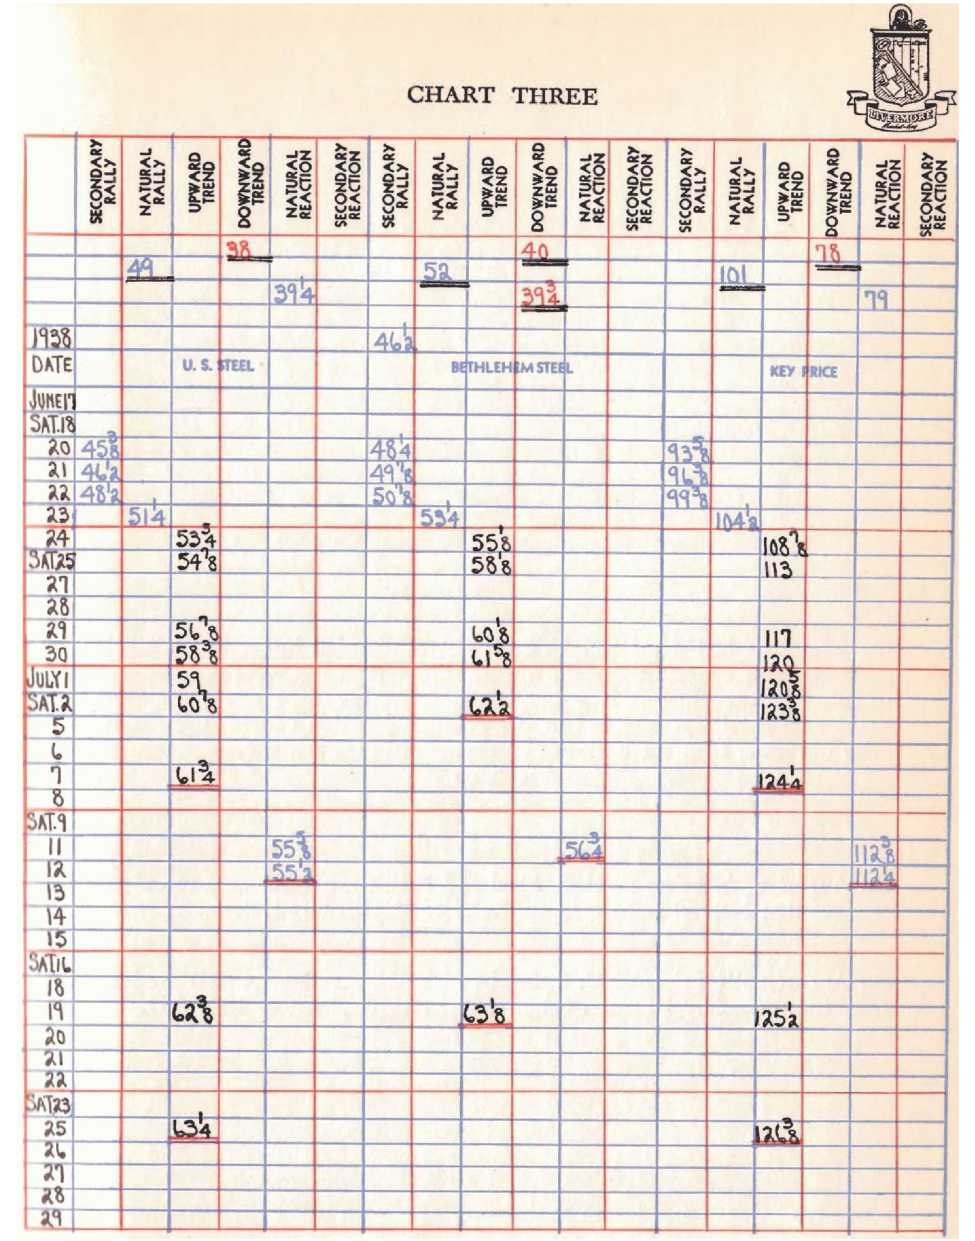 CHART THREE
LIVERMORE
Market Key
SECONDARY RALLY NATURAL RALLY UPWARD TREND DOWNWARD TREND NATURAL REACTION SECONDARY REACTION SECONDARY RALLY NATURAL RALLY UPWARD TREND DOWNWARD TREND NATURAL REACTION SECONDARY REACTION SECONDARY RALLY NATURAL RALLY UPWARD TREND DOWNWARD TREND NATURAL REACTION SECONDARY REACTION
38 40 78
49 52 101
39¼ 39¾ 79
1938 46½
DATE U. S. STEEL BETHLEHEM STEEL KEY PRICE
JUNE 17
SAT. 18
20 45⅜ 48¼ 93⅝
21 46½ 49⅞ 96⅜
22 48½ 50⅞ 99⅜
23 51¼ 53¼ 104½
24 53¾ 55⅛ 108⅞
SAT 25 54⅞ 58⅛ 113
27
28
29 56⅞ 60⅛ 117
30 58⅜ 61⅝ 120
JULY 1 59 120⅝
SAT. 2 60⅞ 62½ 123⅜
5
6
7 61¾ 124¼
8
SAT. 9
11 55⅝ 56¾ 112⅜
12 55½ 112¼
13
14
15
SAT. 16
18
19 62⅜ 63⅛ 125½
20
21
22
SAT 23
25 63¼ 126⅜
26
27
28
29